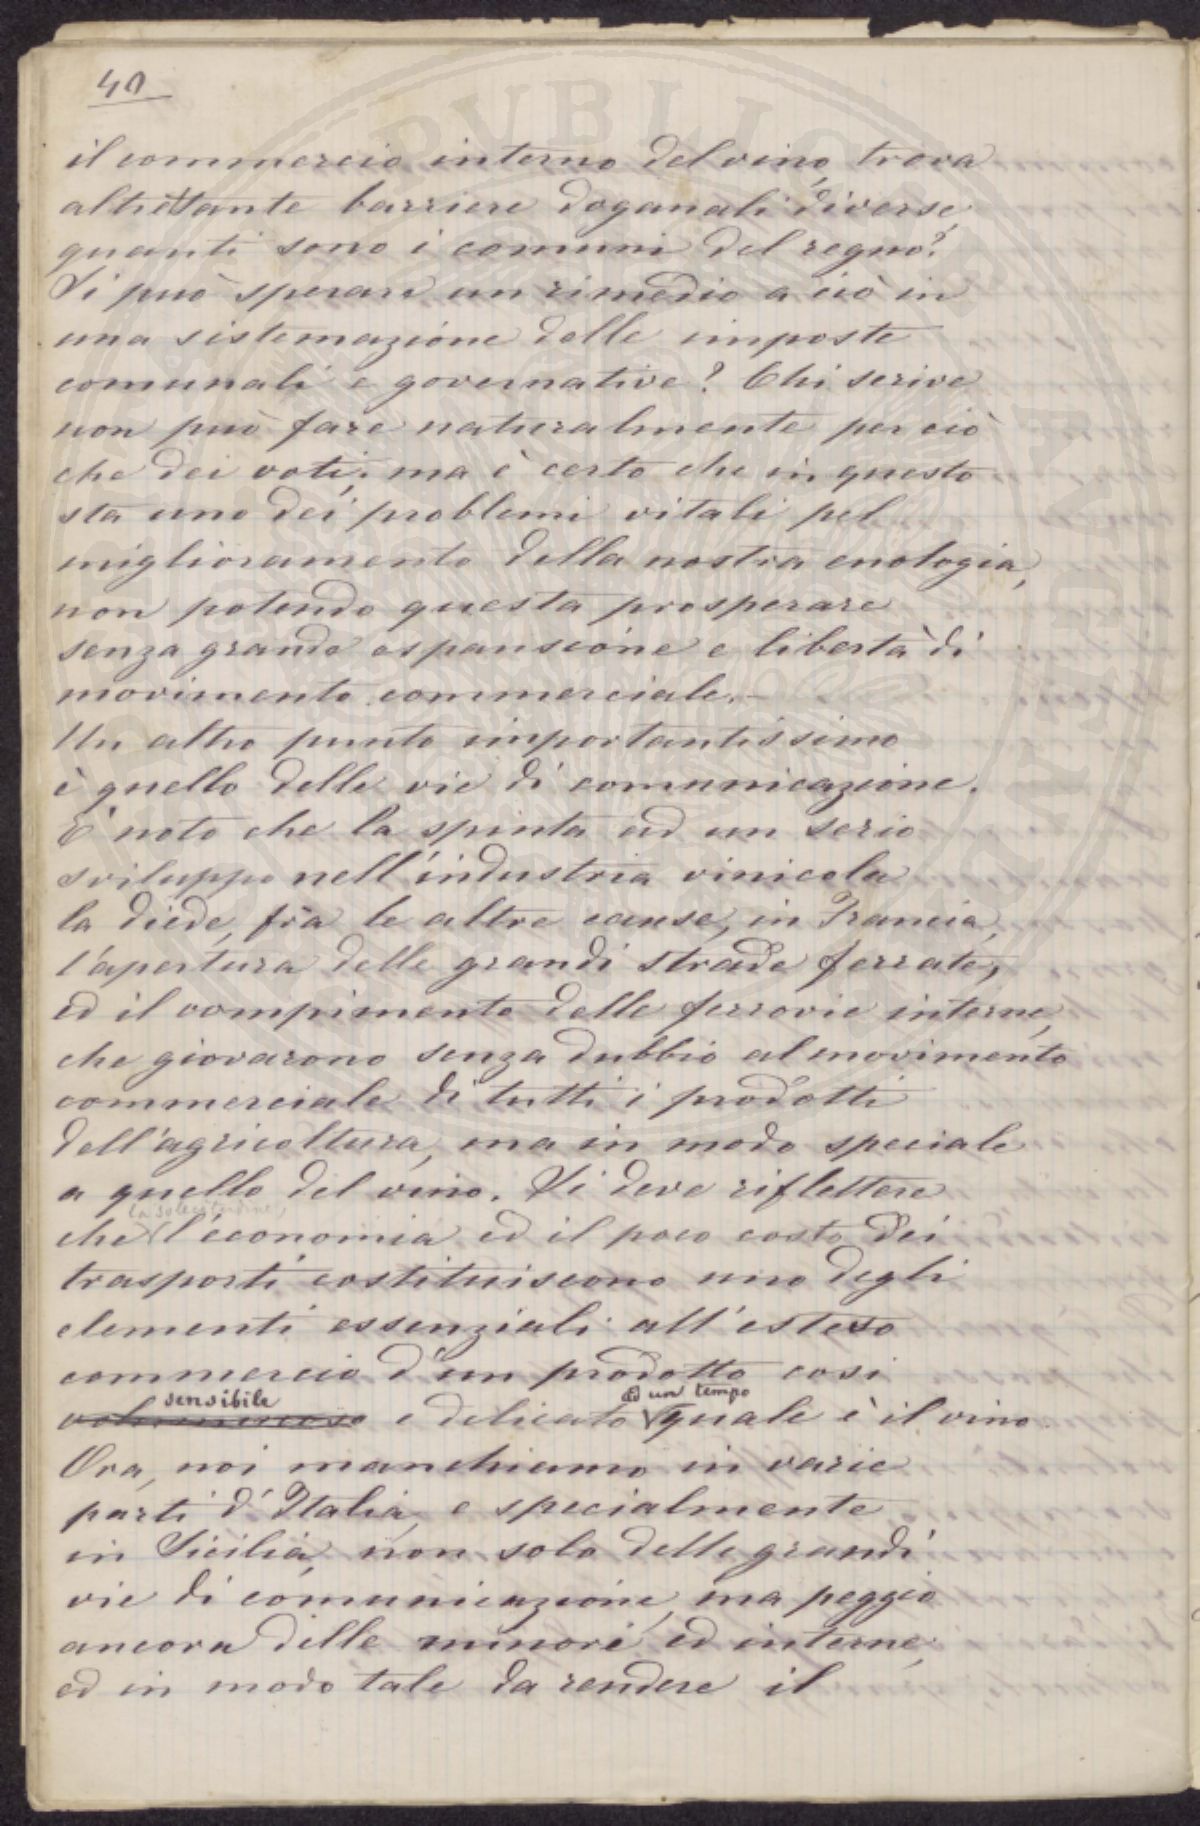 40
il commercio interno del vino, trova
altrettante barriere doganali diverse,
quanti sono i comuni del regno?
Si può sperare un rimedio a ciò in
una sistemazione delle imposte
comunali e governative? Chi scrive
non può fare naturalmente per ciò
che dei voti; ma è certo che in questo
sta uno dei problemi vitali pel
miglioramento della nostra enologia,
non potendo questa prosperare
senza grande espansione e libertà di
movimento commerciale.–
Un altro punto importantissimo
è quello delle vie di comunicazione.
E' noto che la spinta ad un serio
sviluppo nell'industria vinicola
la diede, fra le altre cause, in Francia,
l'apertura delle grandi strade ferrate,
ed il compimento delle ferrovie interne,
che giovarono senza dubbio al movimento
commerciale di tutti i prodotti
dell'agricoltura, ma in modo speciale
a quello del vino. Si deve riflettere
che l'economia ed il poco costo dei
trasporti costituiscono uno degli
elementi essenziali all'esteso
commercio d'un prodotto cosi
sensibile ad un tempo
voluminoso e delicato quale è il vino.
Ora, noi manchiamo in varie
parti d'Italia, e specialmente
in Sicilia, non solo delle grandi
vie di comunicazione, ma peggio
ancora delle minori ed interne,
ed in modo tale da rendere il